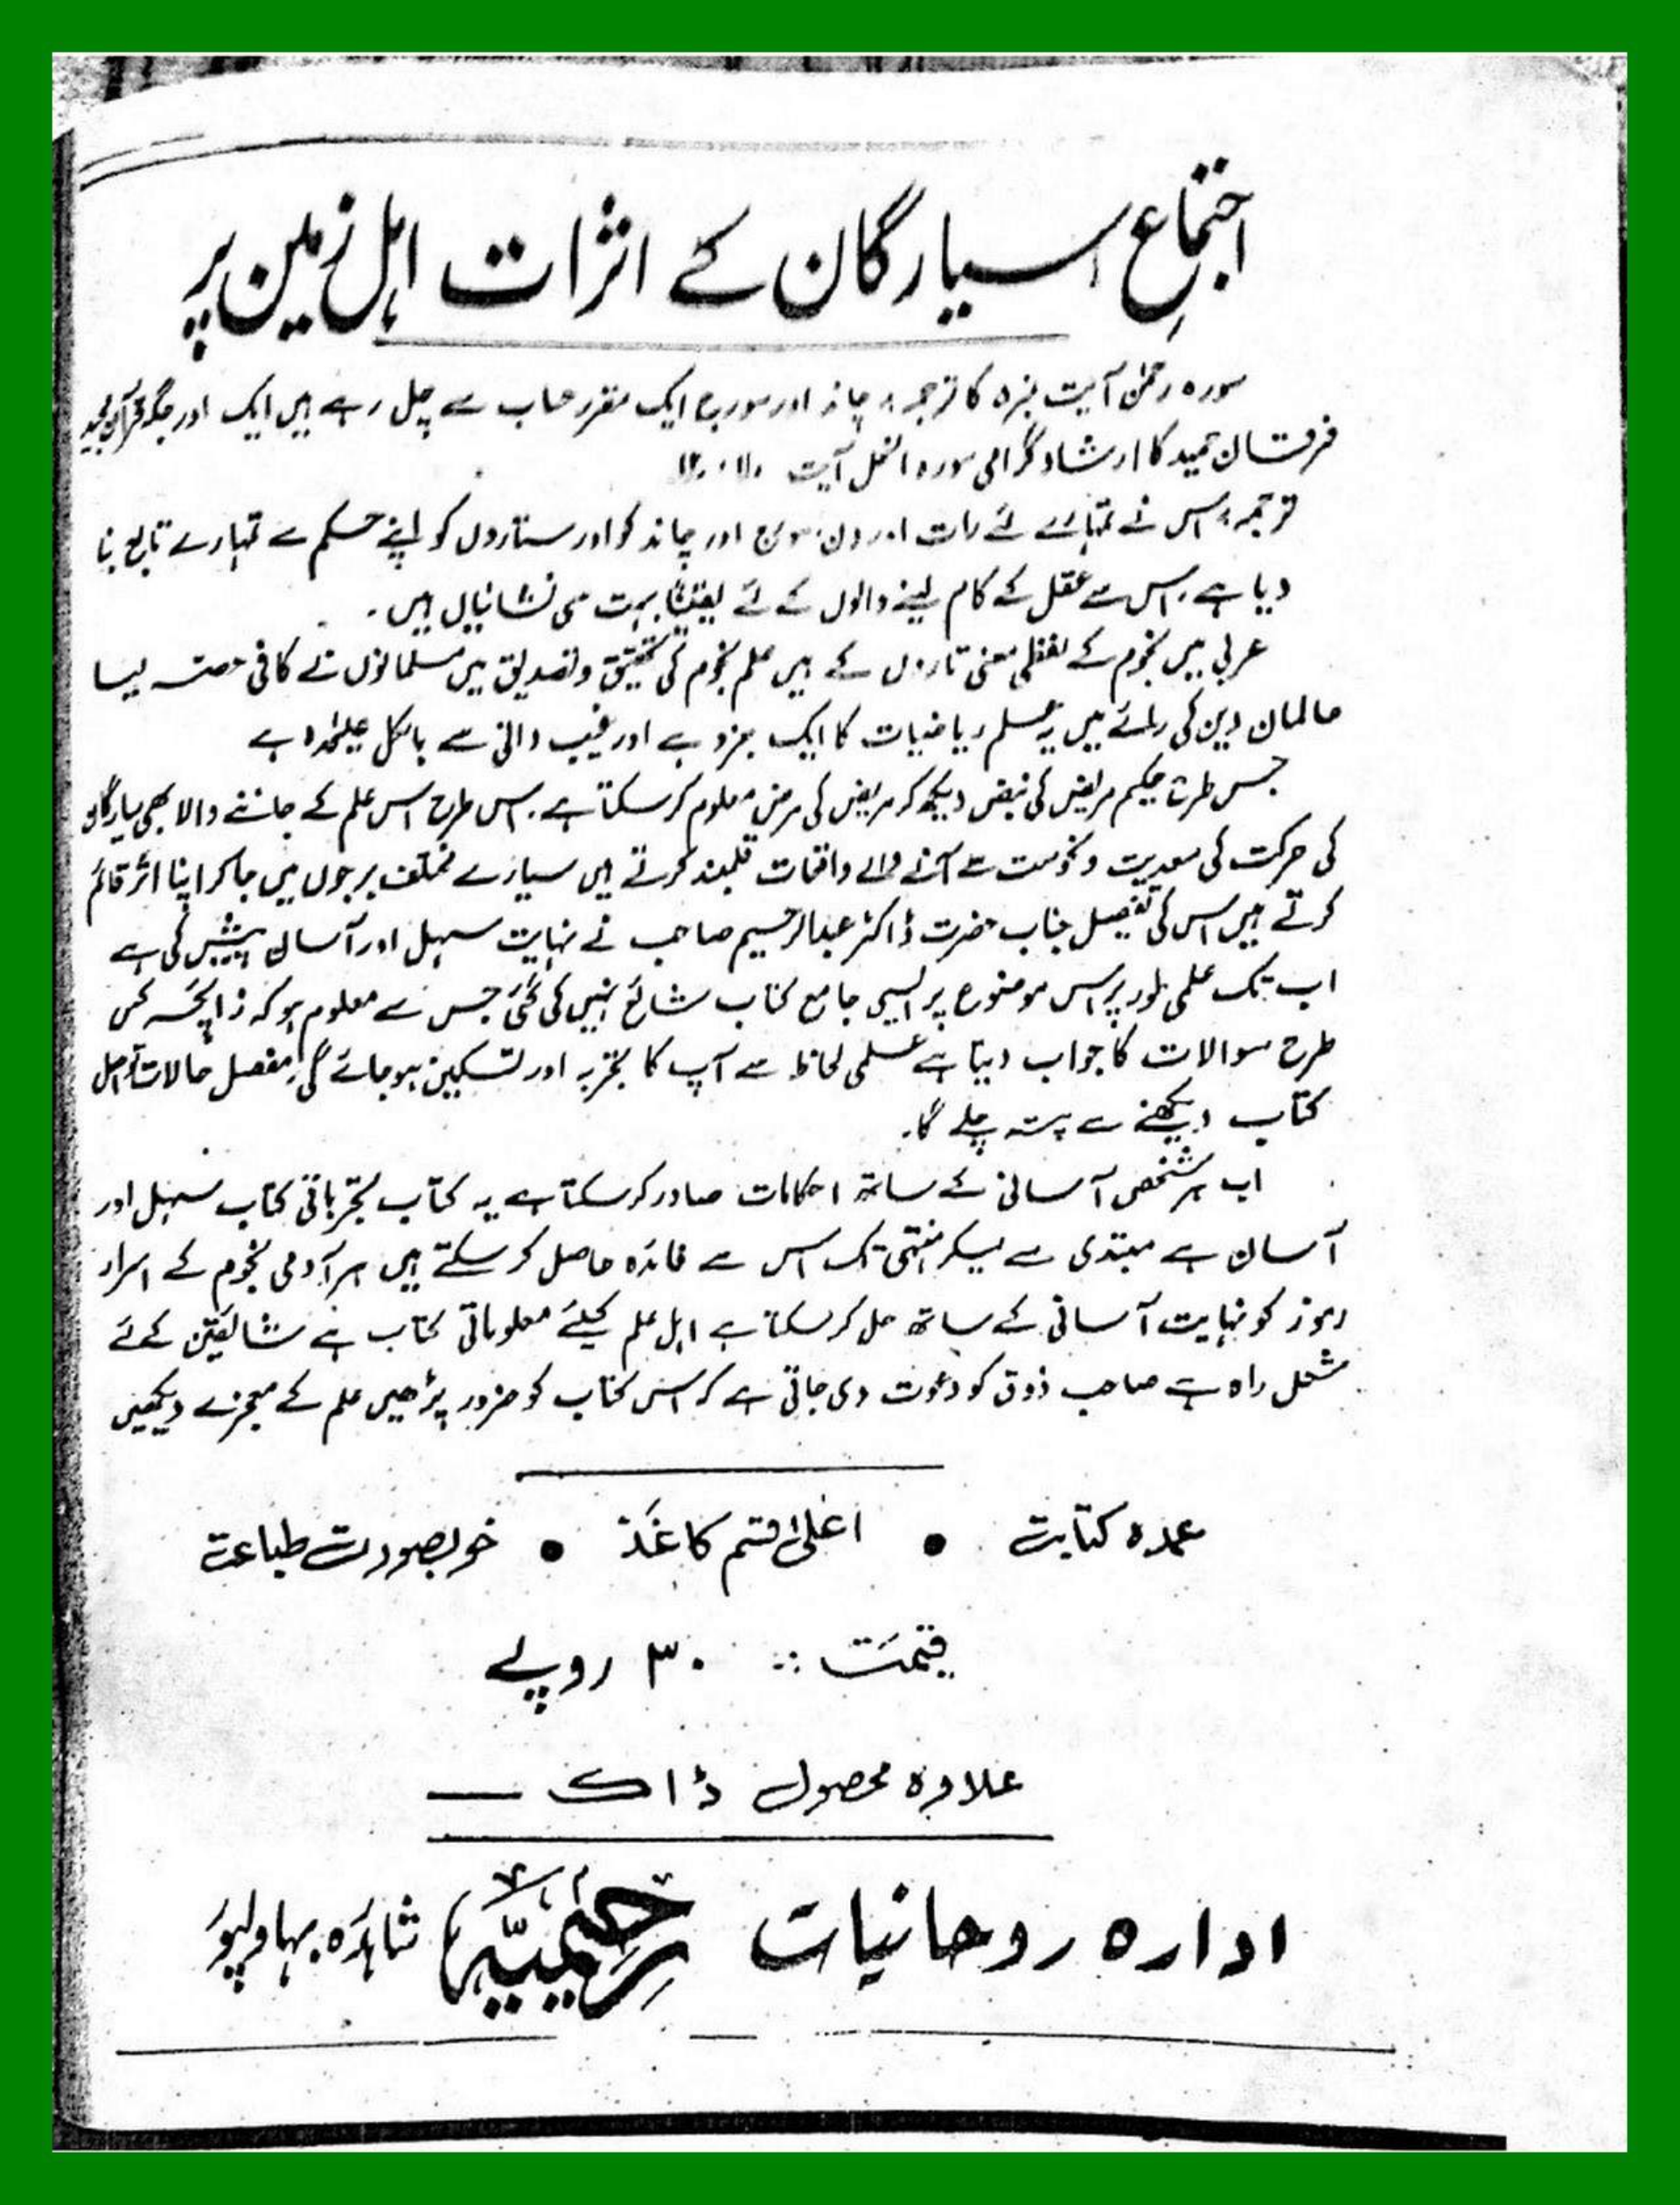 اجتماع سیارگان کے اثرات اہل زمین پر
سورہ رحمٰن آیت نمبر ۵ کا ترجمہ: چاند اور سورج ایک مقرر حساب سے چل رہے ہیں ایک اور جگہ قرآن مجید
فرقان حمید کا ارشاد گرامی سورہ النحل آیت
ترجمہ: اس نے تمہارے لئے رات اور دن سورج اور چاند کو اور ستاروں کو اپنے حکم سے تمہارے تابع بنا
دیا ہے۔ اس سے عقل کے کام لینے والوں کے لئے یقیناً بہت سی نشانیاں ہیں۔
عربی میں نجوم کے لفظی معنی تاروں کے ہیں علم نجوم کی تحقیق و تصدیق میں مسلمانوں نے کافی حصہ لیا
عالمان دین کی رائے میں یہ علم ریاضیات کا ایک جزو ہے اور غیب دانی سے بالکل علیٰحدہ ہے
جس طرح حکیم مریض کی نبض دیکھ کر مریض کی مرض معلوم کر سکتا ہے۔ اس طرح اس علم کے جاننے والا بھی سیارگان
کی حرکت کی سعدیت و نحوست سے آنے والے واقعات قلمبند کرتے ہیں سیارے مختلف برجوں میں جا کر اپنا اثر قائم
کرتے ہیں اس کی تفصیل جناب حضرت ڈاکٹر عبدالرحیم صاحب نے نہایت سہل اور آسان پیش کی ہے
اب تک علمی طور پر اس موضوع پر ایسی جامع کتاب شائع نہیں کی گئی جس سے معلوم ہو کہ زائچہ کس
طرح سوالات کا جواب دیتا ہے علمی لحاظ سے آپ کا تجربہ اور تسکین ہو جائے گی۔ مفصل حالات تو اصل
کتاب دیکھنے سے پتہ چلے گا۔
اب ہر شخص آسانی کے ساتھ احکامات صادر کر سکتا ہے یہ کتاب تجرباتی کتاب سہل اور
آسان ہے مبتدی سے لیکر منتہی تک اس سے فائدہ حاصل کر سکتے ہیں ہر آدمی نجوم کے اسرار
رموز کو نہایت آسانی کے ساتھ حل کر سکتا ہے اہل علم کیلئے معلوماتی کتاب ہے شائقین کے لئے
مشعل راہ ہے صاحب ذوق کو دعوت دی جاتی ہے کہ اس کتاب کو ضرور پڑھیں علم کے معجزے دیکھیں
عمدہ کتابت • اعلیٰ قسم کاغذ • خوبصورت طباعت
قیمت :: ۳۰ روپے
علاوہ محصول ڈاک
ادارہ روحانیات رحیمیہ شاہدرہ بہاولپور